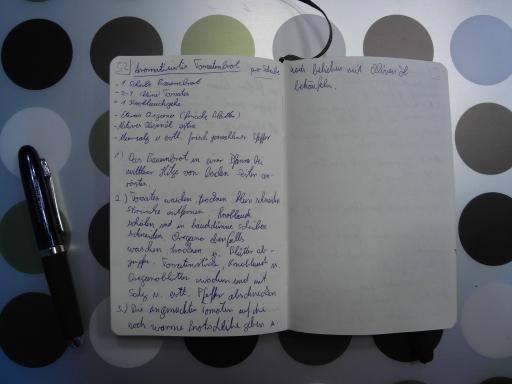 52) Aromatisierte Tomatenbrot pro Scheibe
- 1 Scheibe Bauernbrot
- 2-3 kleine Tomaten
- 1 Knoblauchzehe
- Oregano (frische Blätter)
- Olivenöl extra
- Meersalz u. evtl. frisch gemahlener Pfeffer
1.) Das Bauernbrot in einer Pfanne bei
mittlerer Hitze von beiden Seiten an-
rösten.
2.) Tomaten waschen, trocknen, klein schneiden
Strünke entfernen. Knoblauch
schälen und in hauchdünne Scheiben
schneiden. Oregano ebenfalls
waschen, trocknen u. Blätter ab-
zupfen. Tomatenstücke, Knoblauch u.
Oreganoblätter mischen und mit
Salz u. evtl. Pfeffer abschmecken
3.) Die angemachten Tomaten auf die
noch warme Brotscheibe geben u.
nach Belieben mit Olivenöl
beträufeln.